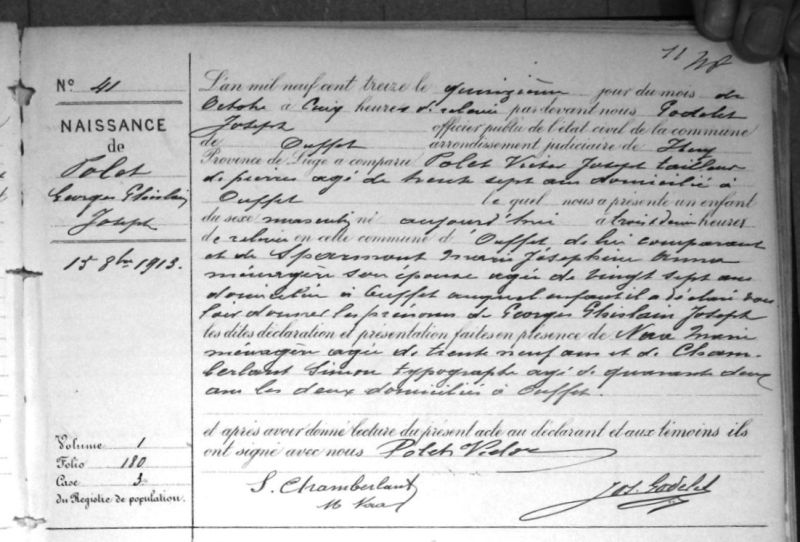 11
Nº 41
NAISSANCE
de
Polet
Georges Ghislain
Joseph
15 8bre 1913.
Volume 1
Folio 180
Case 3
du Registre de population.
L'an mil neuf cent treize le quinzième jour du mois de
Octobre à Cinq heures d relevée par devant nous Godelet
Joseph officier public de l'état civil de la commune
de Ouffet arrondissement judiciaire de Huy
Province de Liège a comparu Polet Victor Joseph tailleur
de pierres agé de trente sept ans domicilié à
Ouffet le quel nous a présenté un enfant
du sexe masculin né aujourd'hui à trois heures
de relevée en cette commune d' Ouffet de lui comparant
et de Sparmont Marie Joséphine Anna
ménagère son épouse agée de vingt sept ans
domiciliée à Ouffet auquel enfant il a déclaré vou
loir donner les prénoms de Georges Ghislain Joseph
les dites déclaration et présentation faites en présence de Marie
ménagère agée de trente neuf ans et de Cham-
berlant Simon typographe agé de quarante deux
ans les deux domiciliés à Ouffet.
et après avoir donné lecture du présent acte au déclarant et aux témoins ils
ont signé avec nous Polet Victor
S. Chamberlant
Jos. Godelet
M